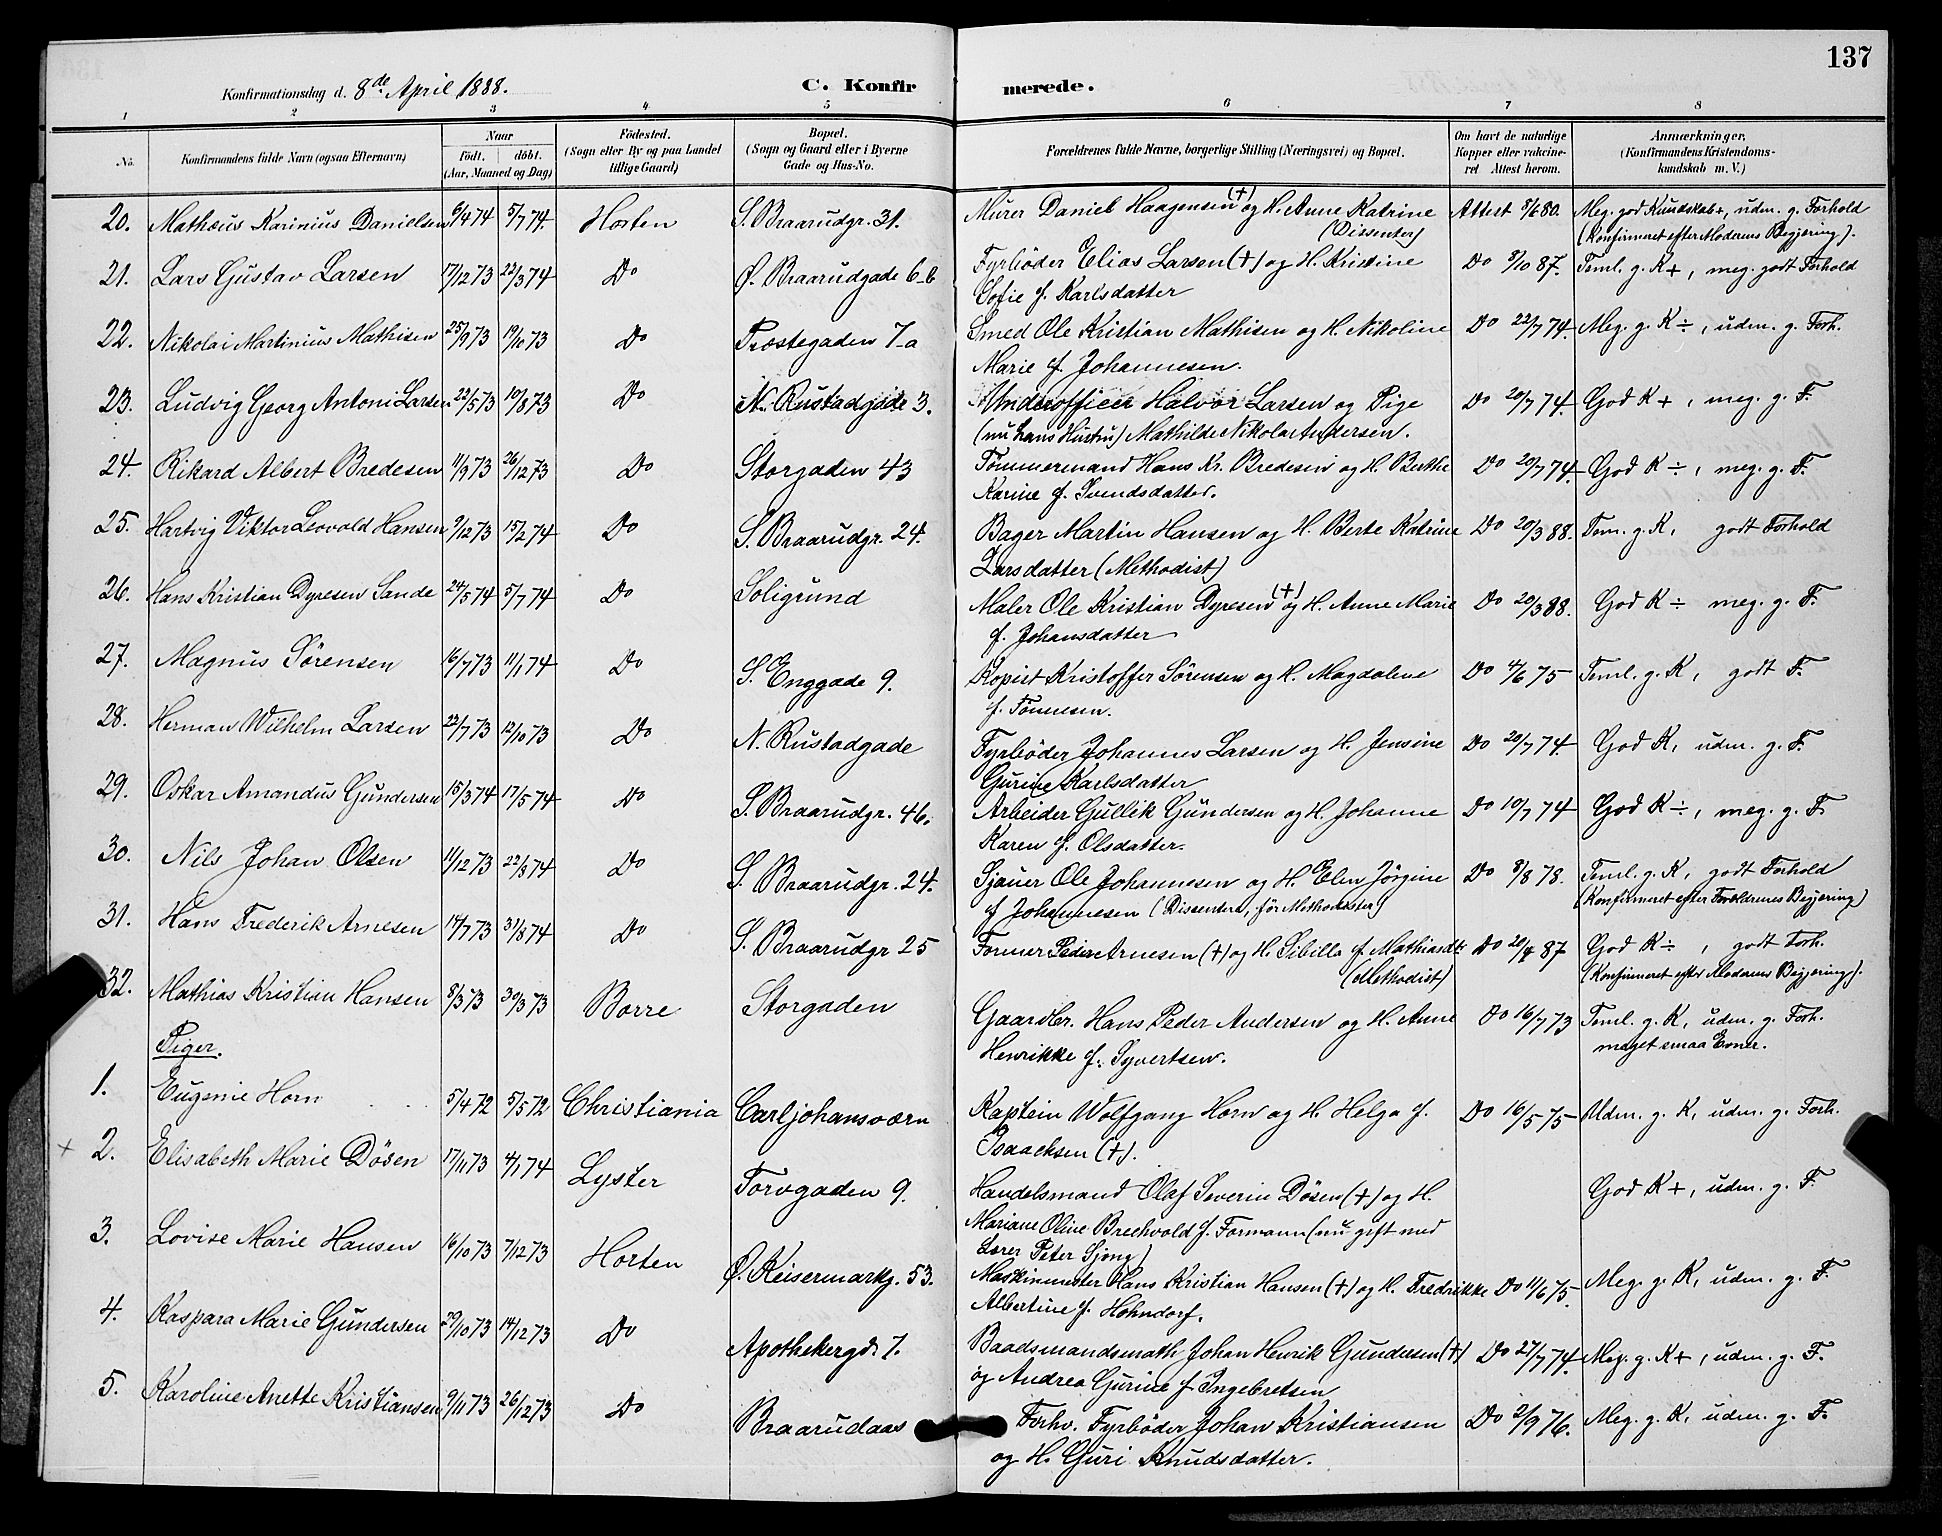 137
Konfirmationsdag d. 8de April 1888.
C. Konfirmerede.
1 2 3 4 5 6 7 8
No. Konfirmandens fulde Navn (ogsaa Efternavn)
Naar
født. døbt.
(Aar, Maaned og Dag)
Fødested.
(Sogn eller By og paa Landet
tillige Gaard)
Bopæl.
(Sogn og Gaard eller i Byerne
Gade og Hus-No.
Forældrenes fulde Navne, borgerlige Stilling (Næringsvei) og Bopæl.
Om havt de naturlige
Kopper eller vakcine-
ret Attest herom.
Anmærkninger,
(Konfirmandens Kristendoms-
kundskab m. V.)
20. Matheus Karinius Danielsen 6/4 74 5/7 74. Horten S. Braarudgr. 31. Murer Daniel Haagensen (+) og H. Anne Katrine Attest 8/6 80. Meg. god Kundskab +, udm. g. Forhold
(Dissenter) (Konfirmeret efter Moderens Begjering).
21. Lars Gustav Larsen 17/12 73 22/3 74 Do Ø. Braarudgade 6-b Fyrbøder Elias Larsen (+) og H. Kristine Do 3/10 87. Teml. g. K +, meg. godt Forhold
Sofie f. Karlsdatter
22. Nikolai Martinius Mathisen 25/9 73 19/10 73 Do Præstegaden 7-a Smed Ole Kristian Mathisen og H. Nikoline Do 22/7 74. Meg. g. K ÷, udm. g. Forh.
Marie f. Johannesen.
23. Ludvig Georg Antoni Larsen 22/5 73 10/8 73 Do N. Rustadgade 3. Underofficer Halvor Larsen og Pige Do 20/7 74. God K +, meg. g. F.
(nu hans Hustru) Mathilde Nikola Andersen.
24. Rikard Albert Bredesen 11/9 73 26/12 73 Do Storgaden 43 Tømmermand Hans Kr. Bredesen og H. Berthe Do 20/7 74. God K ÷, meg. g. F.
Karine f. Svendsdatter.
25. Hartvig Viktor Leovald Hansen 9/12 73 15/2 74 Do S. Braarudgr. 24. Bager Martin Hansen og H. Berte Katrine Do 20/3 88. Tem. g. K, godt Forhold
Larsdatter (Methodist)
26. Hans Kristian Dyresen Sande 24/5 74 5/7 74 Do Soligrund Maler Ole Kristian Dyresen (+) og H. Anne Marie Do 20/3 88. God K ÷ meg. g. F.
f. Johansdatter
27. Magnus Sørensen 16/7 73 11/1 74 Do S. Enggade 9. Kopist Kristoffer Sørensen og H. Magdalene Do 4/6 75 Teml. g. K, godt F.
f. Tønnesen.
28. Herman Wilhelm Larsen 22/7 73 12/10 73 Do N. Rustadgade Fyrbøder Johannes Larsen og H. Jensine Do 20/7 74. God K, udm. g. F.
Gurine Karlsdatter
29. Oskar Amandus Gundersen 15/3 74 17/5 74 Do S. Braarudgr. 46. Arbeider Gullik Gundersen og H. Johanne Do 10/7 74 God K ÷, meg. g. F.
Karen f. Olsdatter.
30. Nils Johan Olsen 11/12 73 22/3 74 Do S. Braarudgr. 24. Sjauer Ole Johannesen og H. Elen Jørgine Do 8/8 78. Teml. g. K, godt Forhold
f Johannesen (Dissentere, før Methodister) (Konfirmeret efter Forældrenes Begjering)
31. Hans Frederik Arnesen 14/7 73 31/8 74 Do S. Braarudgr 25 Former Peder Arnesen (+) og H. Sibilla f. Mathiasdt. Do 20/4 87 God K ÷, godt Forh.
(Methodist) (Konfirmeret efter Moderens Begjering).
32. Mathias Kristian Hansen 8/3 73 30/3 73 Borre Storgaden Gaardbr. Hans Peder Andersen og H. Anne Do 16/7 73 Teml. g. K, udm. g. Forh.
Henrikke f. Syvertsen. meget smaa Evner.
Piger.
1. Eugenie Horn 5/4 72 5/5 72 Christiania Carljohansværn Kaptein Wolfgang Horn og H. Helga f. Do 16/5 75 Udm. g. K, udm. g. Forh.
Isaachsen (+).
+ 2. Elisabeth Marie Døsen 17/11 73 4/1 74 Lyster Torvgaden 9. Handelsmand Olaf Severin Døsen (+) og H. God K +, udm. g. F.
Mariane Oline Brechvold f. Formann (nu gift med
Lærer Peter Sjong)
3. Lovise Marie Hansen 16/10 73 7/12 73 Horten Ø. Keisermarkg. 53. Maskinmester Hans Kristian Hansen (+) og H. Fredrikke Do 11/6 75. Meg. g. K, udm. g. F.
Albertine f. Hohndorf.
4. Kaspara Marie Gundersen 29/10 73 14/12 73 Do Apothekergd. 7. Baadsmandsmath Johan Henrik Gundersen (+) Do 27/7 74. Meg. g. K +, udm. g. F.
og Andrea Gurine f Ingebretsen
5. Karoline Anette Kristiansen 9/11 73 26/12 73 Do Braarudaas Forhv. Fyrbøder Johan Kristiansen Do 2/9 76. Meg. g. K, udm. g. F.
og H. Guri Knudsdatter.